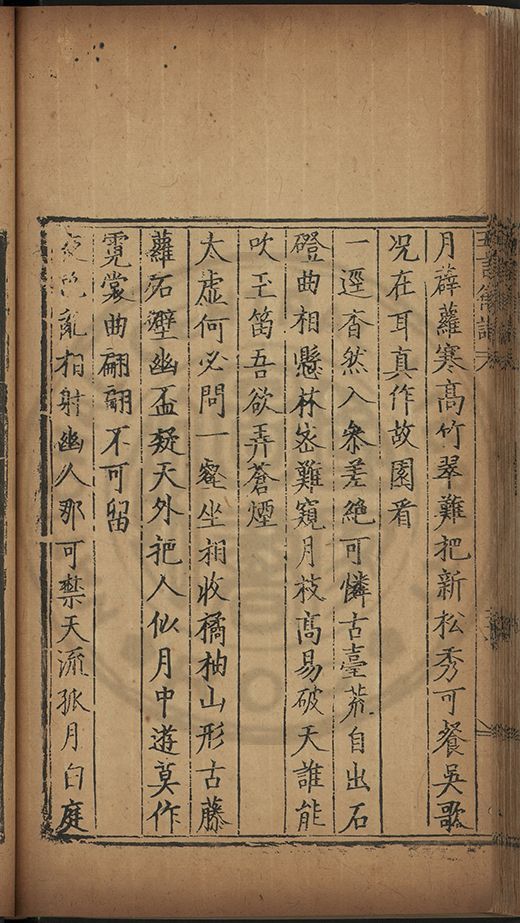 月薜蘿寒高竹翠難把新松秀可餐吳歌
况在耳真作故園看
一逕杳然入參差絶可憐古臺荒自出石
磴曲相懸林密難窺月枝高易破天誰能
吹玉笛吾欲弄蒼煙
太虛何必問一壑坐相收橘柚山形古藤
蘿石壁幽盃疑天外把人似月中遊莫作
霓裳曲翩翩不可留
夜色亂相射幽人那可禁天流孤月白庭